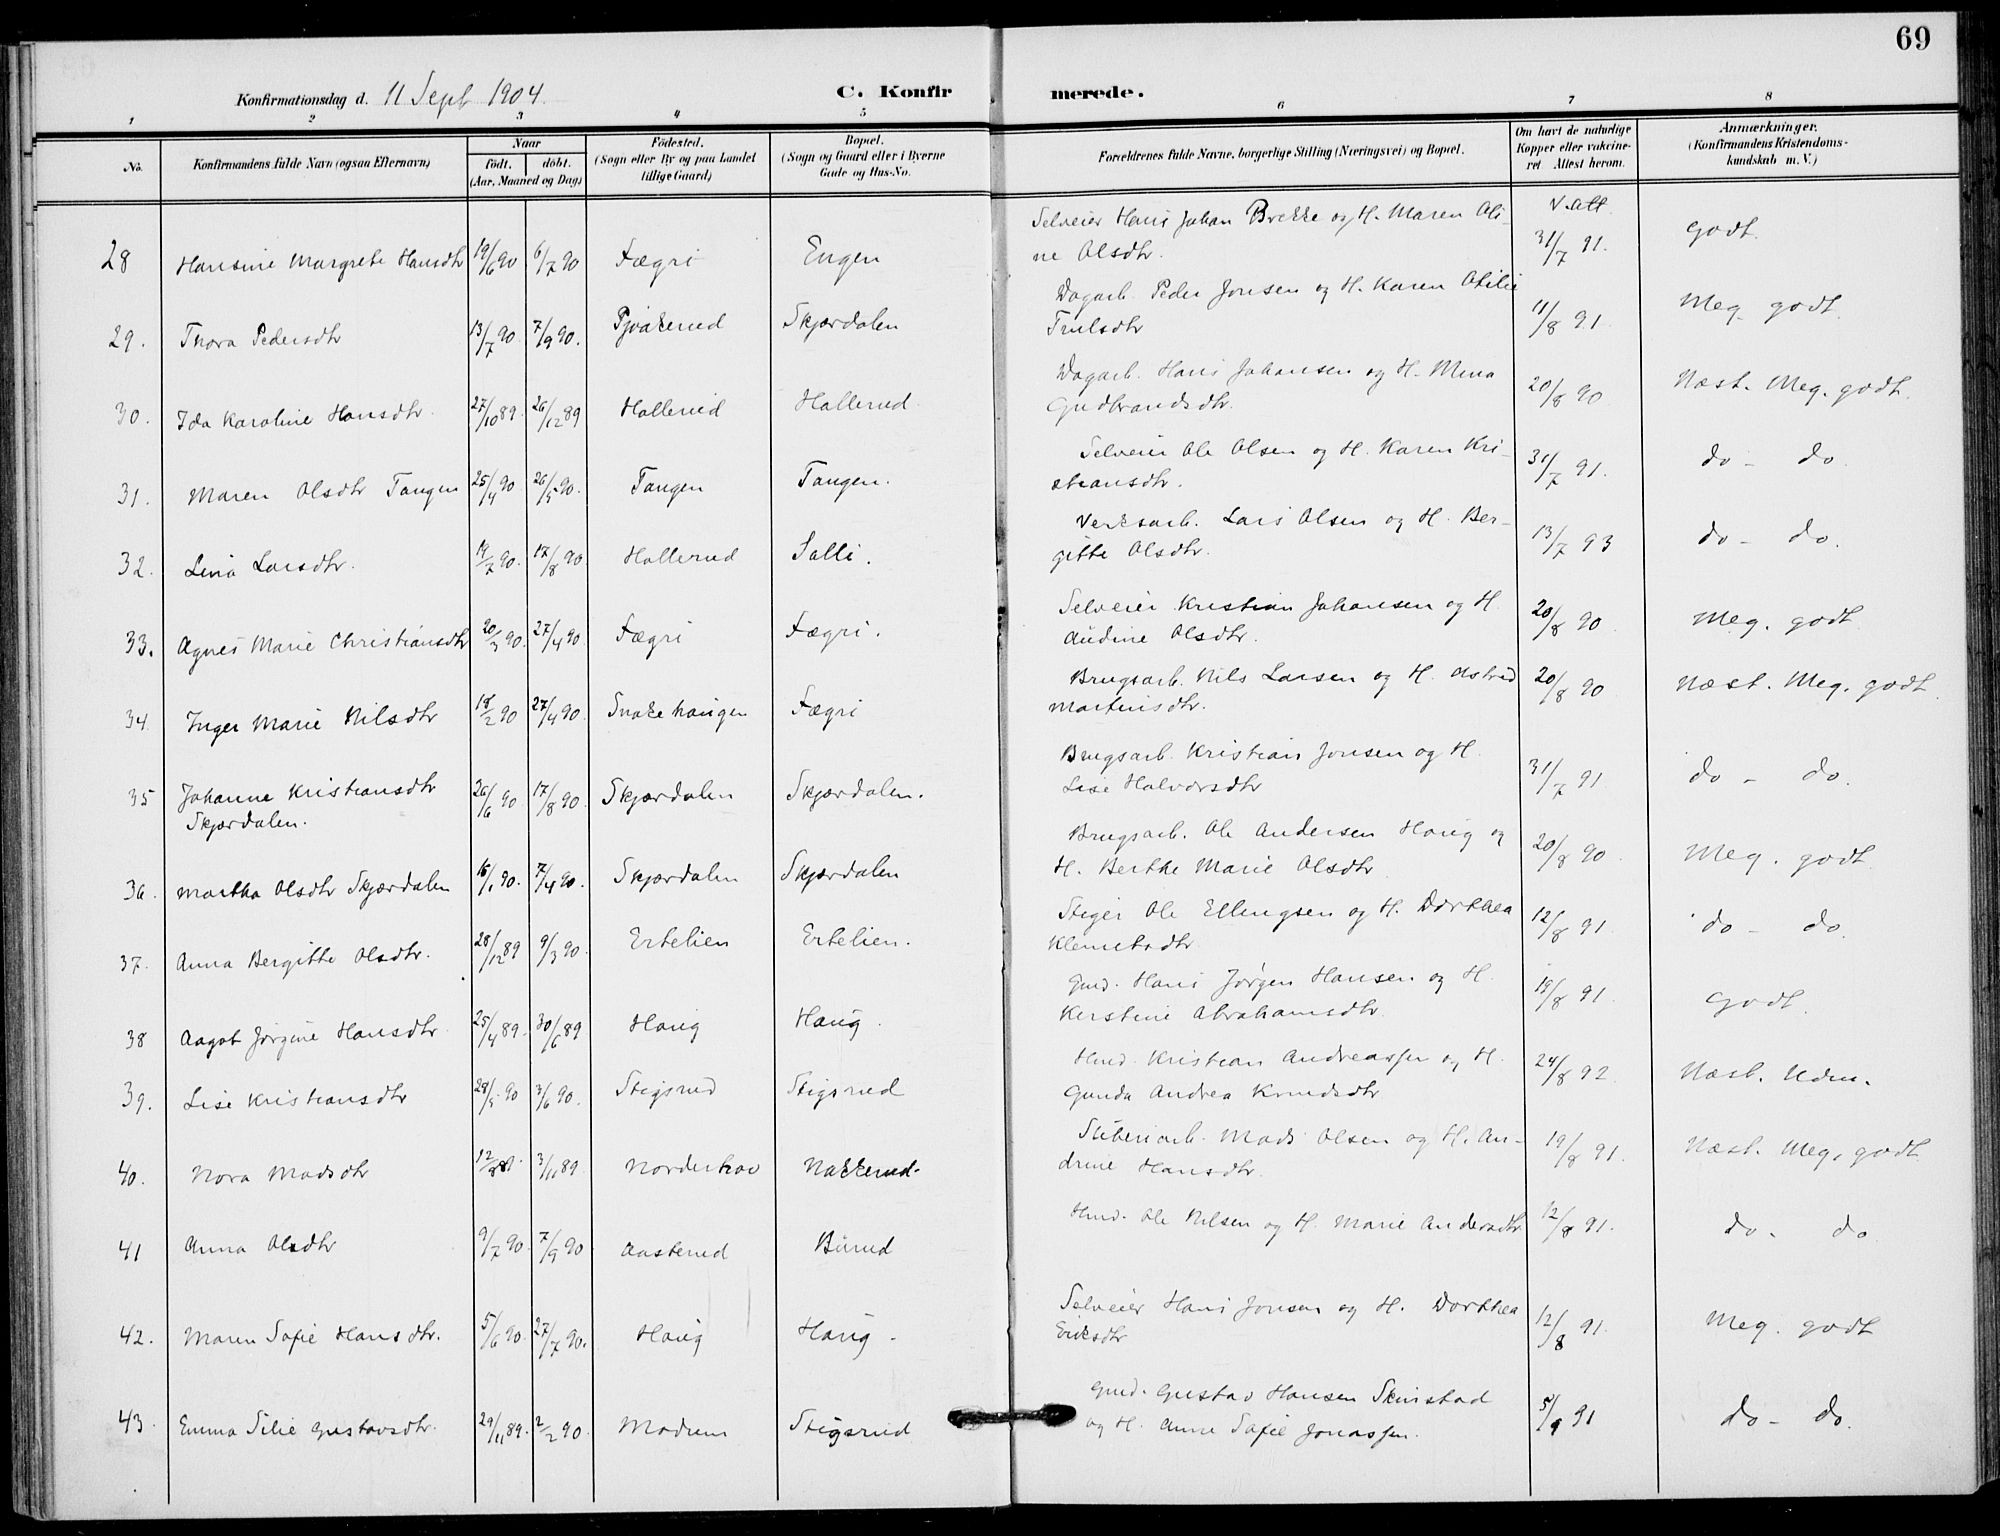 69
Konfirmationsdag d. 11 Sept 1904.
C. Konfirmerede.
1 2 3 4 5 6 7 8
No.
Konfirmandens fulde Navn (ogsaa Efternavn)
Naar
födt. döbt.
(Aar, Maaned og Dag)
Födested.
(Sogn eller By og paa Landet
tillige Gaard)
Bopæl.
(Sogn og Gaard eller i Byerne
Gade og Hus-No.
Forældrenes fulde Navne, borgerlige Stilling (Næringsvei) og Bopæl.
Om havt de naturlige
Kopper eller vakcine-
ret Attest herom.
Anmærkninger.
(Konfirmandens Kristendoms-
kundskab m. V.)
28 Hansine Margrete Hansdtr 19/6 90 6/7 90 Fægri Engen Selveier Hans Johan Brekke og H. Maren Oli- V. att. 31/7 91. Godt.
ne Olsdtr.
29. Thora Pedersdtr 13/7 90 7/9 90. Pjåkerud Skjærdalen Dagarb. Peder Jonsen og H. Karen Otilie 11/8 91. Meg. godt.
Trulsdtr
30. Ida Karoline Hansdtr. 27/10 89 26/12 89 Hollerud Hollerud. Dagarb. Hans Johansen og H. Mina 20/8 90 Næst. Meg. godt.
Gudbrandsdtr.
31. Maren Olsdtr Tangen 25/4 90 26/5 90. Tangen Tangen. Selveier Ole Olsen og H. Karen Kri- 31/7 91. do - do.
stiansdtr.
32. Lina Larsdtr. 19/7 90. 17/8 90 Hollerud Solli. Verksarb. Lars Olsen og H. Ber- 13/7 93 do - do.
gitte Olsdtr.
33. Agnes Marie Christiansdtr 20/3 90. 27/4 90 Fægri Fægri. Selveier Kristian Johansen og H. 20/8 90 Meg. godt
Audine Olsdtr.
34. Inger Marie Nilsdtr 18/2 90 27/4 90. Snakehaugen Fægri Brugsarb. Nils Larsen og H. Astrid 20/8 90 Næst. Meg. godt.
Martinsdtr.
35 Johanne Kristiansdtr 26/6 90 17/8 90 Skjærdalen Skjærdalen. Brugsarb. Kristian Jonsen og H. 31/7 91 do - do.
Skjærdalen. Lise Halvorsdtr
36. Martha Olsdtr Skjærdalen 16/1 90. 7/4 90. Skjærdalen Skjærdalen Brugsarb. Ole Andersen Haug og 20/8 90. Meg. godt.
H. Berthe Marie Olsdtr
37. Anna Bergitte Olsdtr. 28/12 89 9/3 90. Ertelien Ertelien. Stiger Ole Ellingsen og H. Dorthea 12/8 91. do - do.
Klemetsdtr
38 Aagot Jørgine Hansdtr 25/4 89. 30/6 89 Haug Haug. Gmd. Hans Jørgen Hansen og H. 19/8 91. Godt.
Kerstine Abrahamsdtr.
39. Lise Kristiansdtr 28/5 90 3/6 90. Stigsrud Stigsrud Hmd. Kristian Andreassen og H. 24/8 92. Næst. Udm.
Gunda Andrea Knudsdtr
40. Nora Madsdtr 3/11 89. Norderhov Nakkerud. Sliberiarb. Mads Olsen og H. An- 19/8 91. Næst. Meg. godt
drine Hansdtr.
41 Anna Olsdtr 9/7 90. 7/9 90 Aasterud Burud Hmd. Ole Nilsen og H. Marie Andersdtr 12/8 91. do. do
42. Maren Sofie Hansdtr. 5/6 90. 27/7 90. Haug Haug. Selveier Hans Jonsen og H. Dorthea 12/8 91. Meg. godt
Eriksdtr
43. Emma Silie Gustavsdtr. 29/11 89. 2/2 90 Modum Stigsrud Gmd. Gustav Hansen Skinstad 5/9 91 do - do.
og H. Anne Sofie Jonassen.